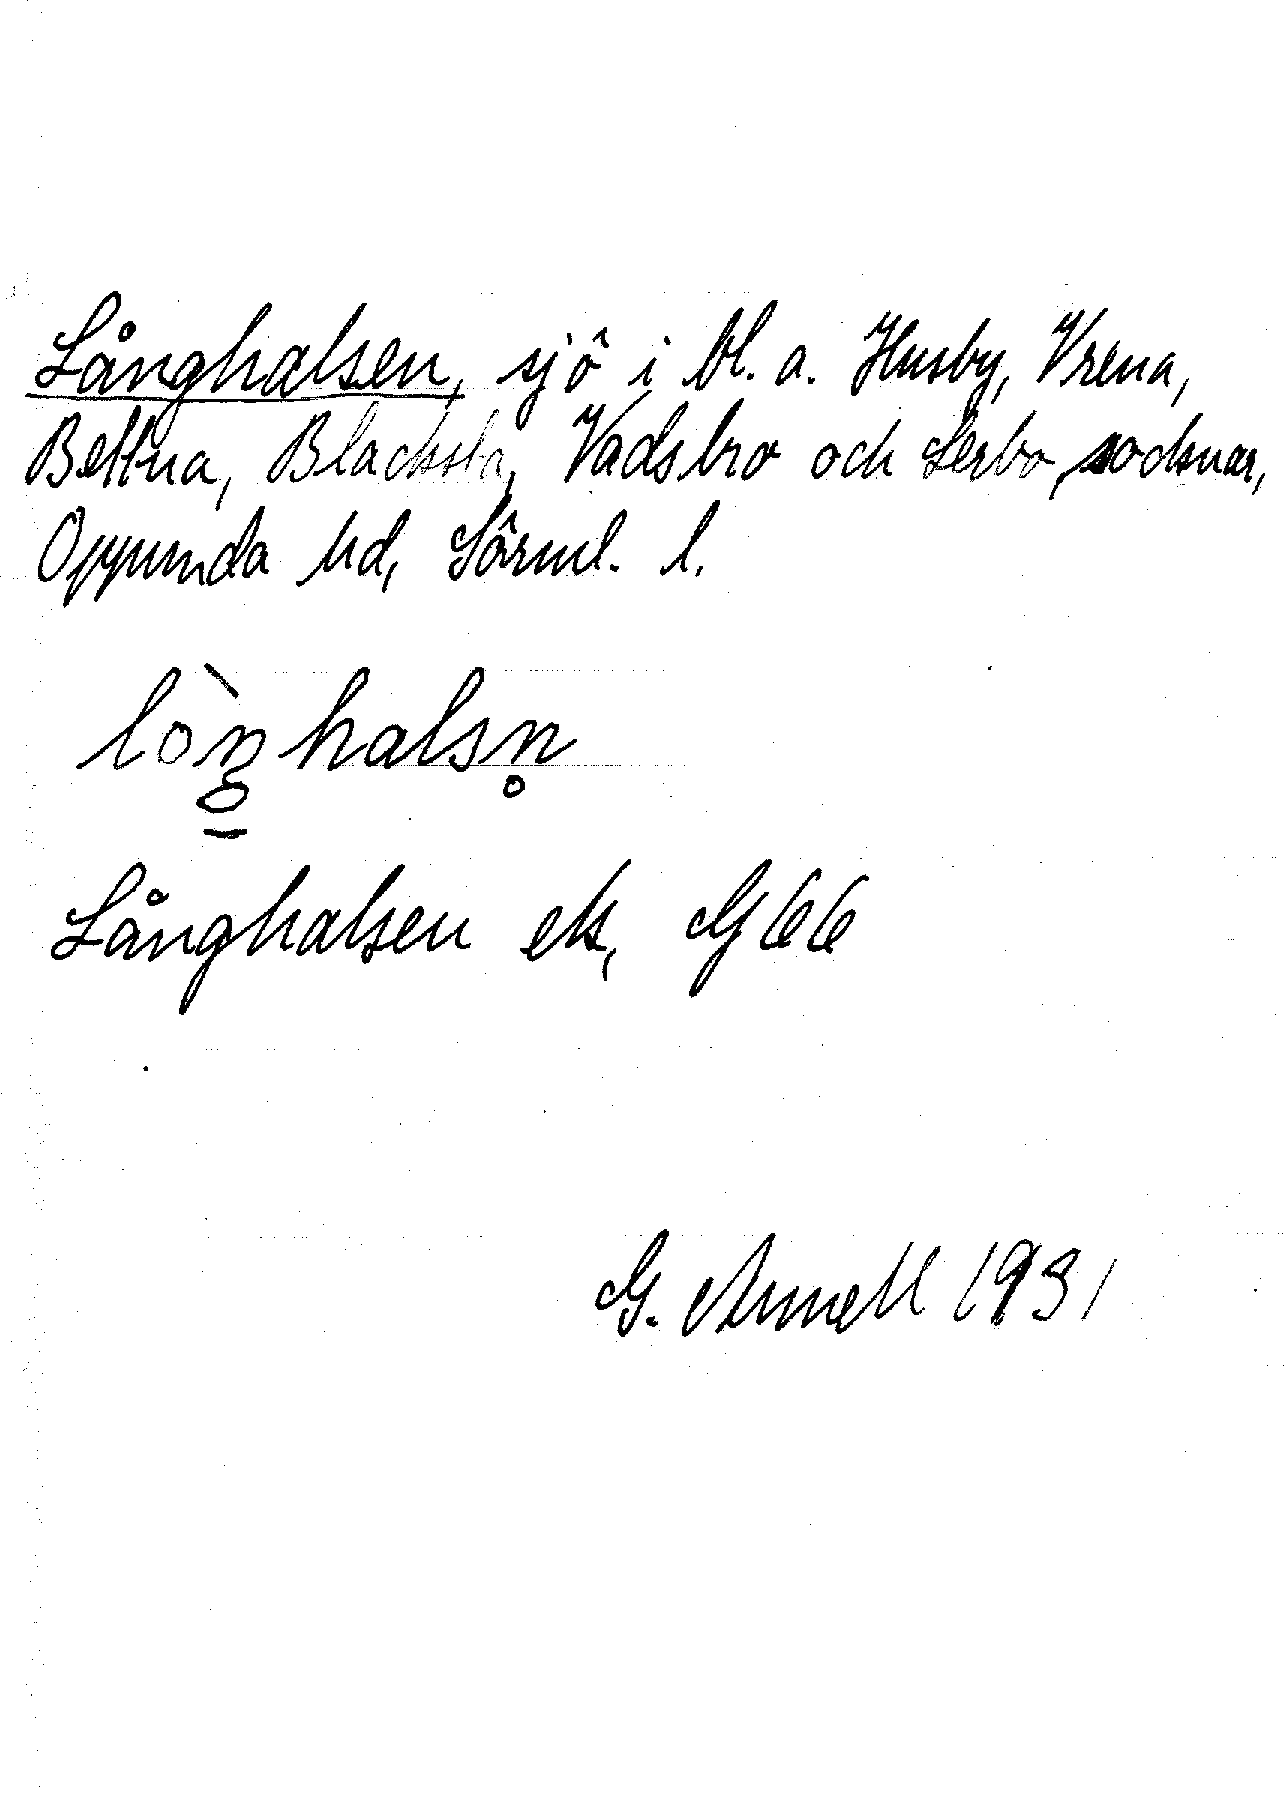 Långhalsen, sjö i bl. a. Husby, Vrena,
Bettna, Blacksta, Vadsbro och Lerbo socknar,
Oppunda hd, Sörml. l.
lòŋhalsn̥
Långhalsen ek, G 66
G. Arnell 1931